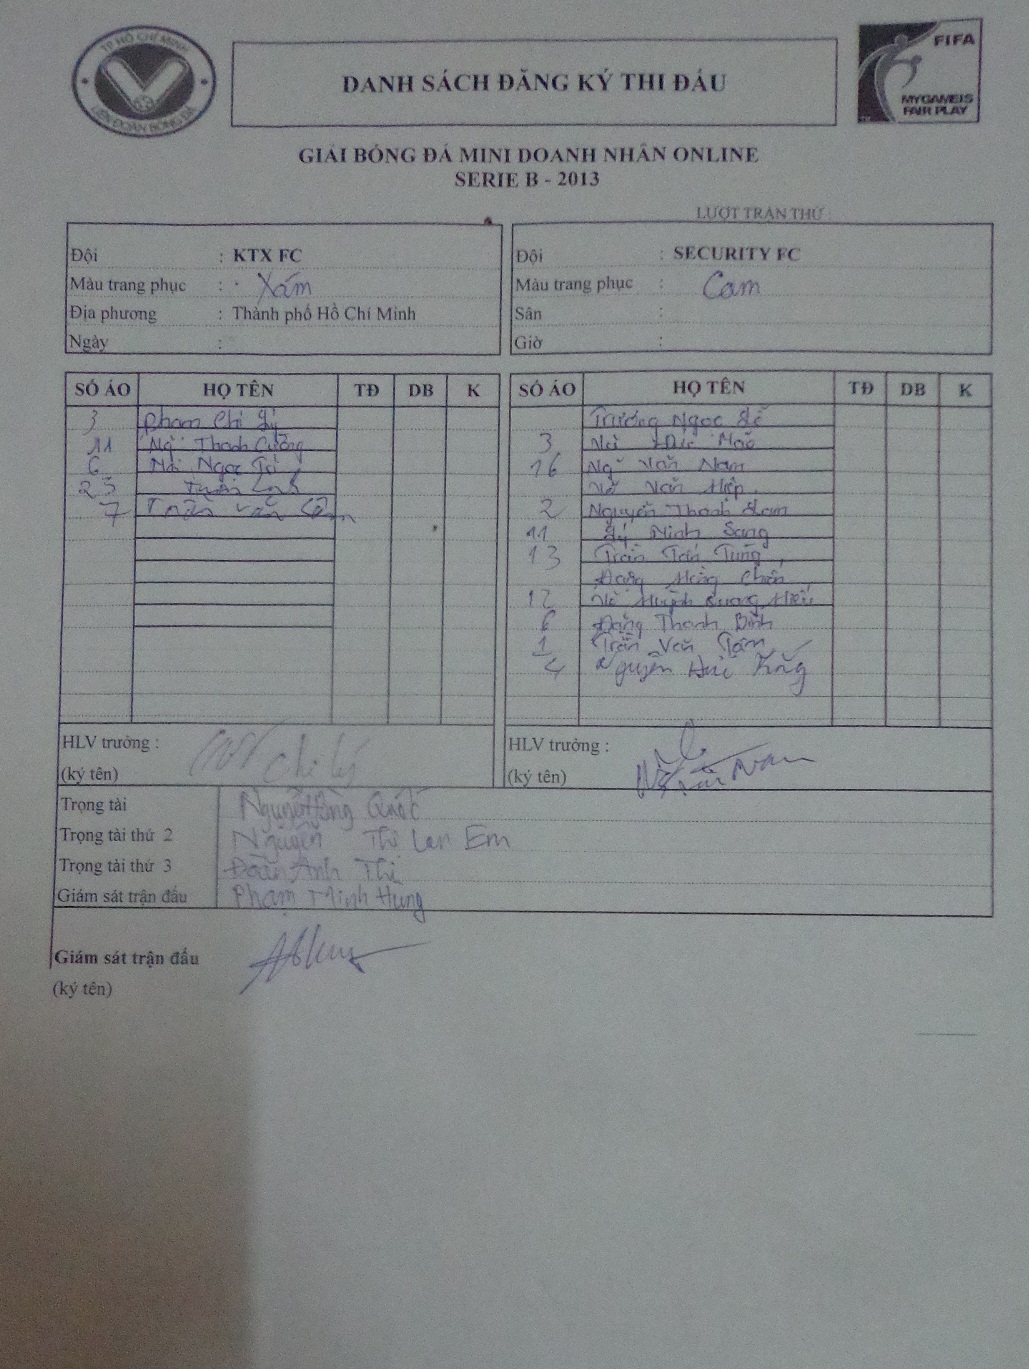 TP HỒ CHÍ MINH
LIÊN ĐOÀN BÓNG ĐÁ
DANH SÁCH ĐĂNG KÝ THI ĐẤU
FIFA
MY GAME IS
FAIR PLAY
GIẢI BÓNG ĐÁ MINI DOANH NHÂN ONLINE
SERIE B - 2013
LƯỢT TRẬN THỨ :
Đội : KTX FC
Màu trang phục : Xám
Địa phương : Thành phố Hồ Chí Minh
Ngày :
Đội : SECURITY FC
Màu trang phục : Cam
Sân :
Giờ :
SỐ ÁO HỌ TÊN TĐ DB K
3 Phạm Chí Lý
11 Ng Thanh Cường
6 Ngọc
23 Tuấn
7 Trần Văn
SỐ ÁO HỌ TÊN TĐ DB K
Trương Ngọc
3 Đức
16 Ng Văn Nam
Võ Văn Hiệp
2 Nguyễn Thanh
11 Lý Minh Sang
13 Trần Tấn Tùng
Đặng Hồng
12 Võ Huỳnh Quang Hiếu
6 Đặng Thanh Bình
1 Trần Văn Tâm
4 Nguyễn
HLV trưởng :
(ký tên) Chí Lý
HLV trưởng :
(ký tên)
Trọng tài Quốc
Trọng tài thứ 2 Nguyễn Thị Lan Em
Trọng tài thứ 3 Đoàn Anh Thi
Giám sát trận đấu Phạm Minh Hưng
Giám sát trận đấu
(ký tên)